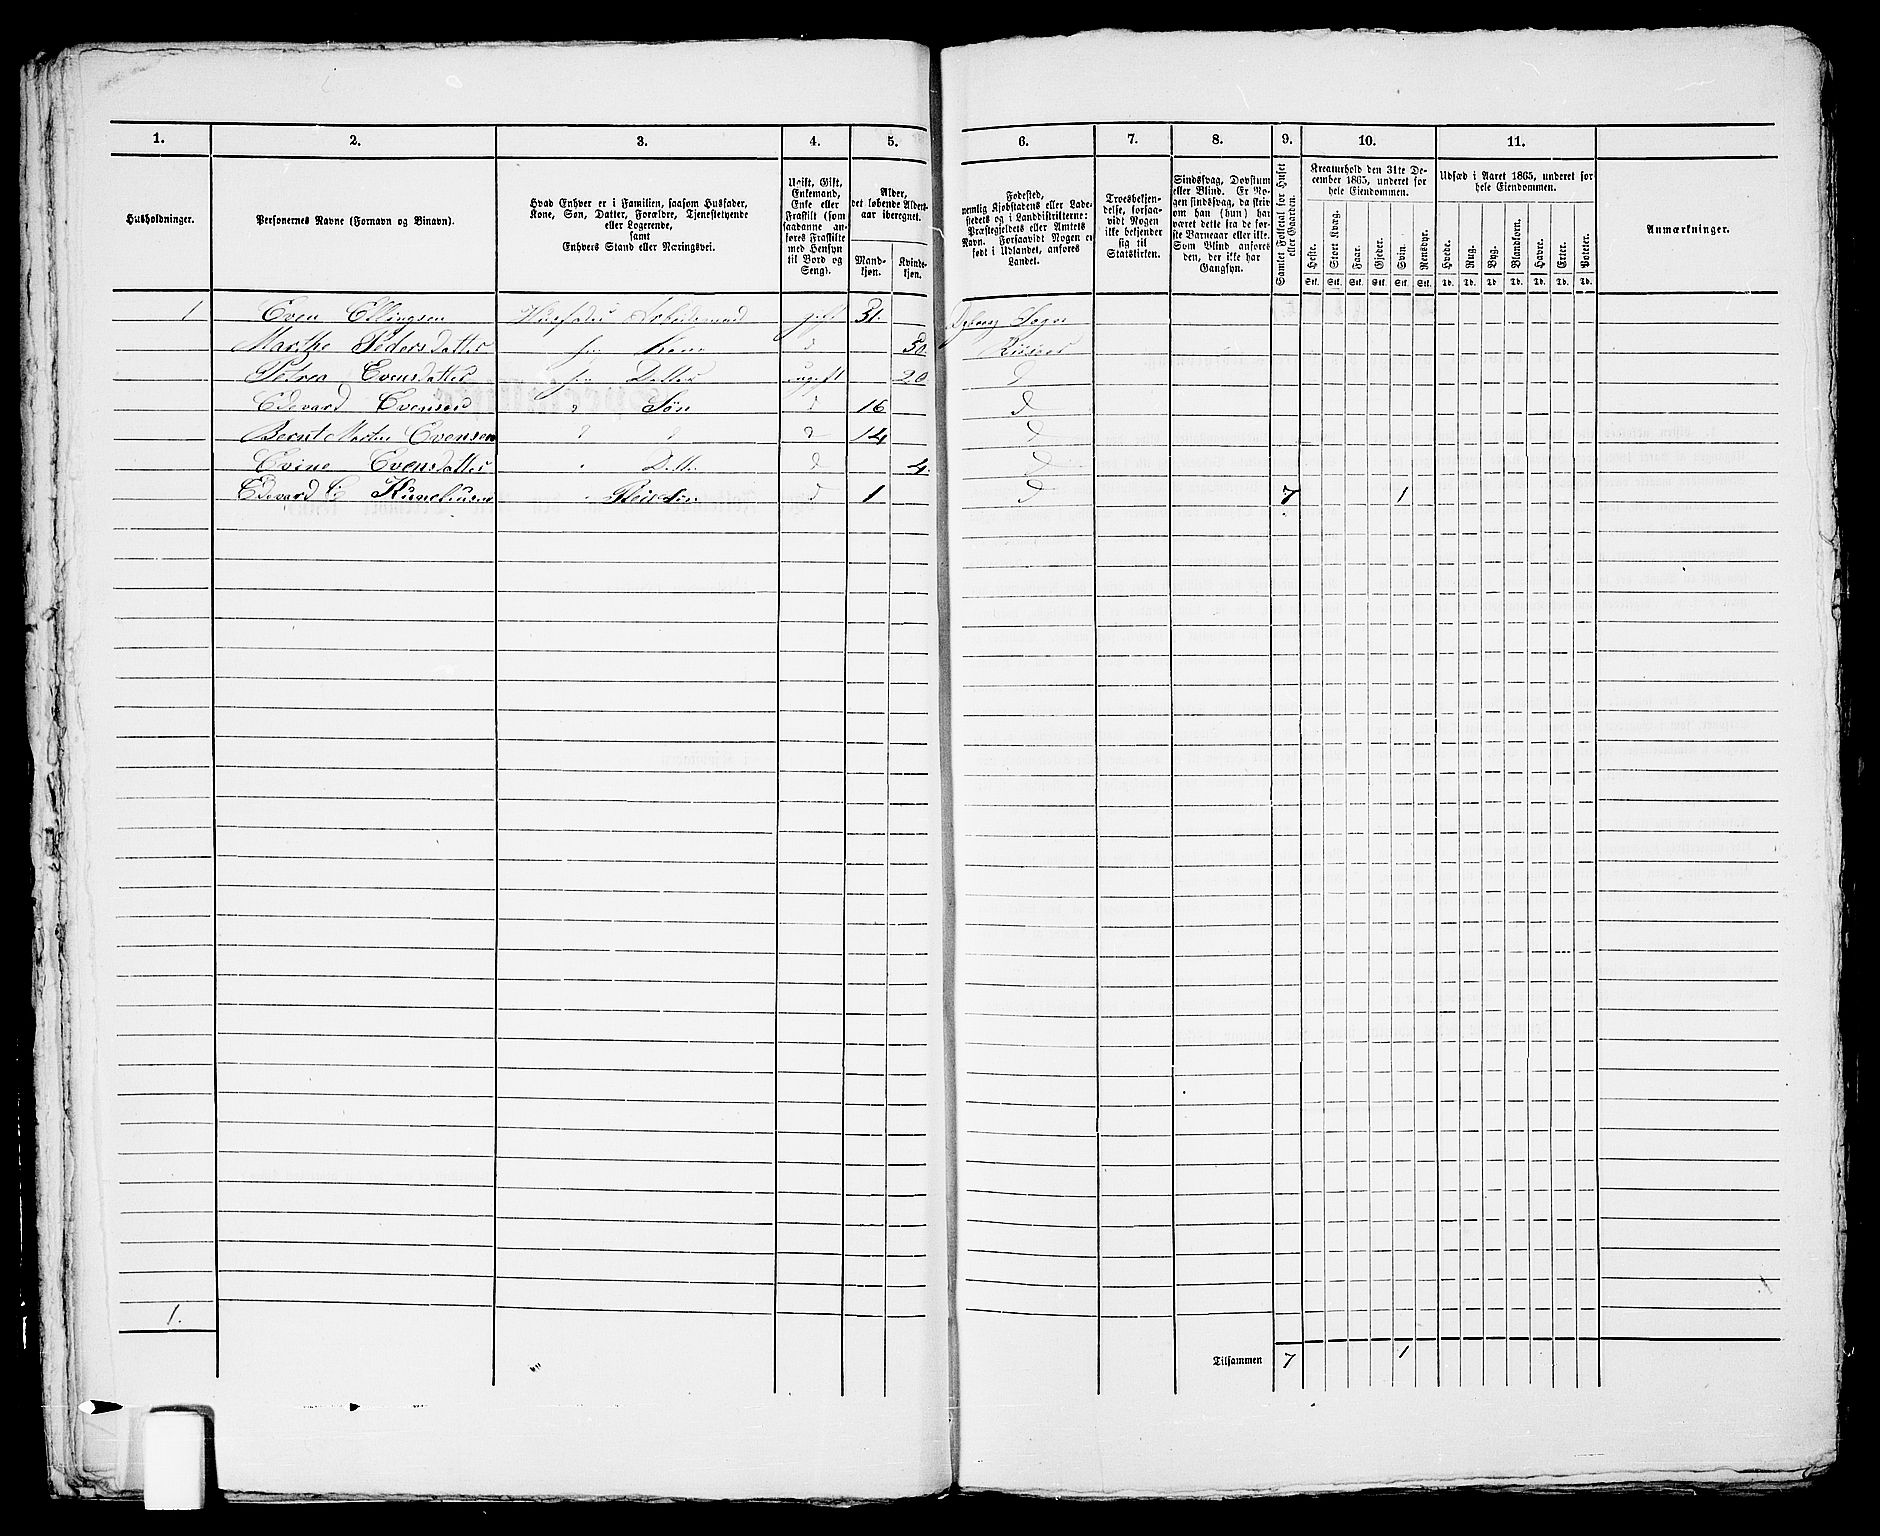 1. 2. 3. 4. 5. 6. 7. 8. 9. 10. 11.
Husholdninger.
Personernes Navne (Fornavn og Binavn).
Hvad Enhver er i Familien, saasom Husfader,
Kone, Søn, Datter, Forældre, Tjenestetyende
eller Logerende,
samt
Enhvers Stand eller Næringsvei.
Ugift, Gift,
Enkemand,
Enke eller
Fraskilt (som
saadanne an-
føres Fraskilte
med Hensyn
til Bord og
Seng).
Alder,
det løbende Alders-
aar iberegnet.
Mand-
kjøn.
Kvinde-
kjøn.
Fødested,
nemlig Kjøbstadens eller Lade-
stedets og i Landdistrikterne:
Præstegjeldets eller Amtets
Navn. Forsaavidt Nogen er
født i Udlandet, anføres
Landet.
Troesbekjen-
delse, forsaa-
vidt Nogen
ikke bekjender
sig til
Statskirken.
Sindssvag, Døvstum
eller Blind. Er No-
gen sindssvag, da skriv
om han (hun) har
været dette fra de før-
ste Barneaar eller ikke.
Som Blind anføres
den, der ikke har
Gangsyn.
Samlet Folketal for Huset
eller Gaarden.
Kreaturhold den 31te De-
cember 1865, underet for
hele Eiendommen.
Heste. Stort Kvæg. Faar. Gjeder. Svin. Rensdyr.
Stk. Stk. Stk. Stk. Stk. Stk.
Udsæd i Aaret 1865, underet for
hele Eiendommen.
Hvede. Rug. Byg. Blandkorn. Havre. Erter. Poteter.
Td. Td. Td. Td. Td. Td. Td.
Anmærkninger.
1 Even Ellingsen Husfader Arbeidsmand gift 51. Sogn
Marthe Pedersdatter hs Kone d 50. Risøer
Petrea Evensdatter hs Datter ugift 20 d
Edevard Evensen " Søn d 16 d
Bernt Martin Evensen d d d 14 d
Evine Evensdatter " Datt d 4. d
Edevard C " d 1 d 7 1
1.
Tilsammen 7 1